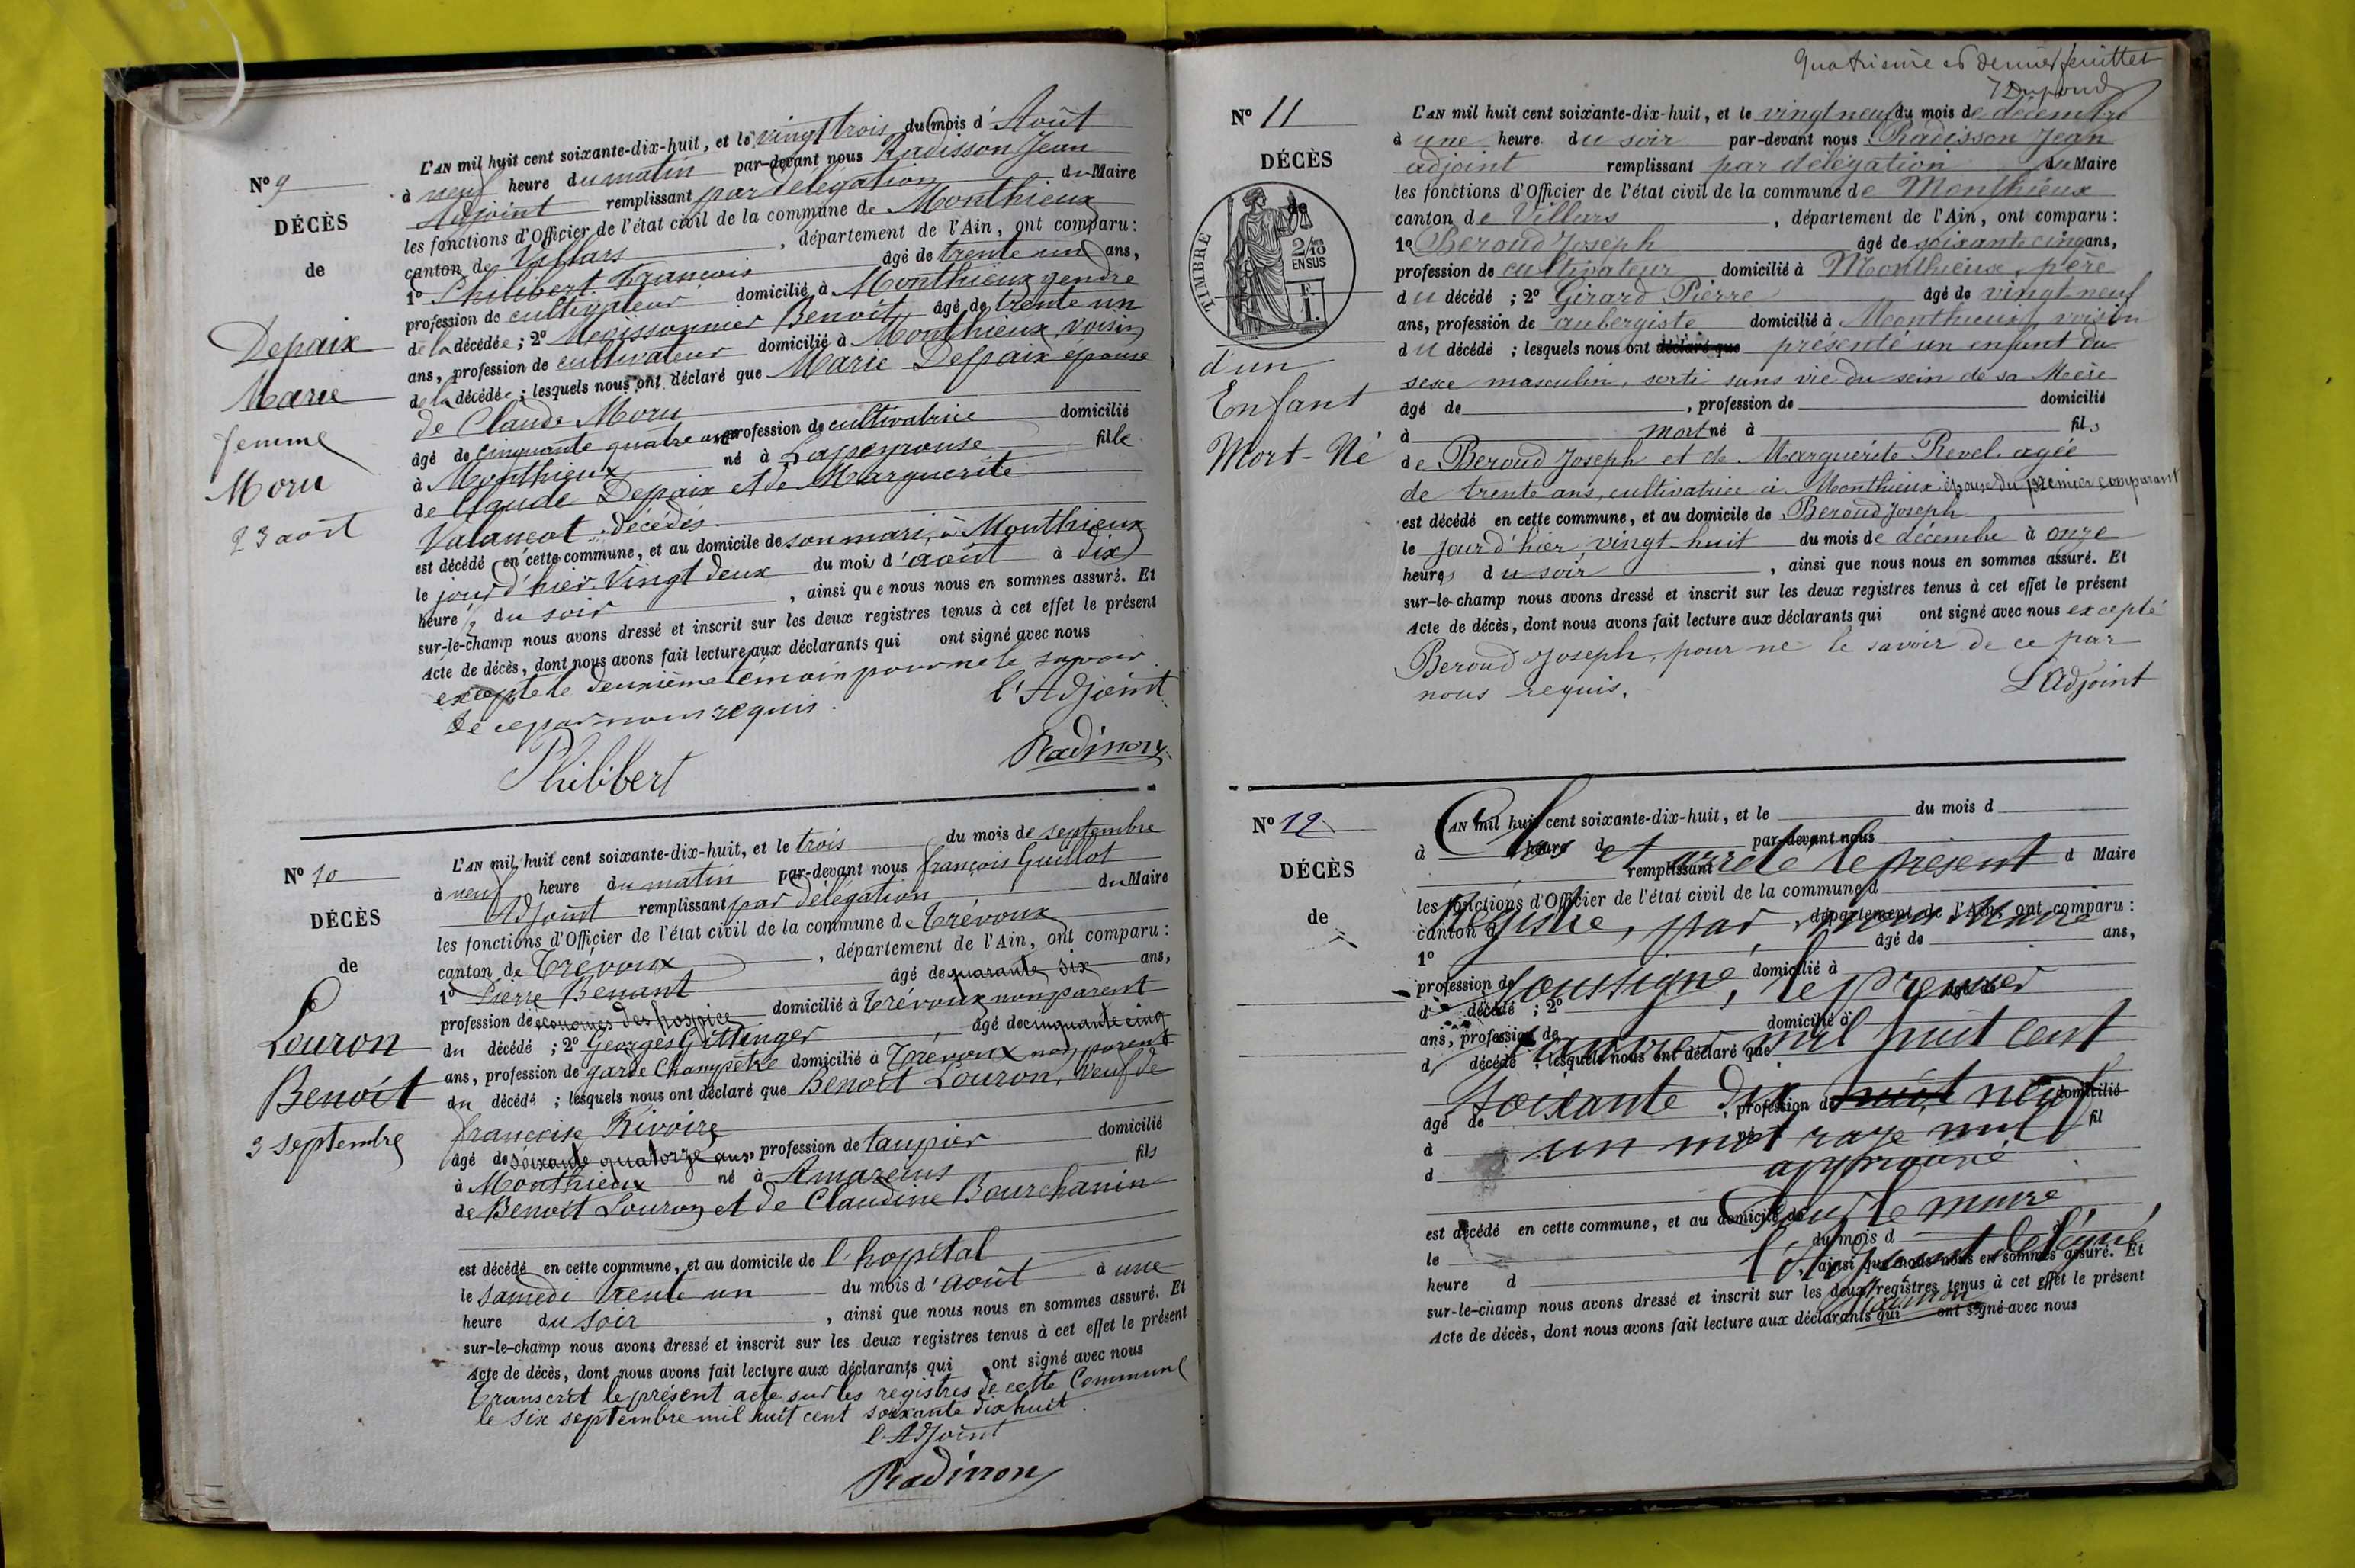 N° 9
DÉCÈS
de
Depaix
Marie
femme
Moru
23 août
L'AN mil huit cent soixante-dix-huit, et le vingt trois du mois d'Août
à neuf heure du matin par-devant nous Radisson Jean
Adjoint remplissant par délégation du Maire
les fonctions d'Officier de l'état civil de la commune de Monthieux
canton de Villars , département de l'Ain, ont comparu :
1° Philibert François âgé de trente un ans,
profession de cultivateur domicilié à Monthieux gendre
de la décédée ; 2° Megissonnier Benoît âgé de trente un
ans, profession de cultivateur domicilié à Monthieux, voisin
de la décédée ; lesquels nous ont déclaré que Marie Depaix épouse
de Claude Moru
âgé de cinquante quatre ans profession de cultivatrice domicilié
à Monthieux né à Lapeyrouse fille
de Claude Depaix et de Marguerite
Valançot décédés
est décédé en cette commune, et au domicile de son mari, à Monthieux
le jour d'hier Vingt deux du mois d'août à dix
heures du soir , ainsi que nous nous en sommes assuré. Et
sur-le-champ nous avons dressé et inscrit sur les deux registres tenus à cet effet le présent
Acte de décès, dont nous avons fait lecture aux déclarants qui ont signé avec nous
excepté le deuxième témoin pour ne le savoir
de ce par nous requis.
l'Adjoint
Philibert
Radisson
N° 10
DÉCÈS
de
Louron
Benoît
3 septembre
L'AN mil huit cent soixante-dix-huit, et le trois du mois de septembre
à neuf heure du matin par-devant nous françois Guillot
Adjoint remplissant par délégation du Maire
les fonctions d'Officier de l'état civil de la commune de Trévoux
canton de Trévoux , département de l'Ain, ont comparu :
1° Pierre Benant âgé de quarante six ans,
profession de économes des hospice domicilié à Trévoux non parent
du décédé ; 2° Georges Gittinger âgé de cinquante cinq
ans, profession de garde Champêtre domicilié à Trévoux non parent
du décédé ; lesquels nous ont déclaré que Benoît Louron, veuf de
françoise Rivoire
âgé de soixante quatorze ans, profession de taupier domicilié
à Monthieux né à Amareins fils
de Benoît Louron et de Claudine Bourchanin
est décédé en cette commune, et au domicile de l'hopital
le samedi trente un du mois d'août à une
heure du soir , ainsi que nous nous en sommes assuré. Et
sur-le-champ nous avons dressé et inscrit sur les deux registres tenus à cet effet le présent
Acte de décès, dont nous avons fait lecture aux déclarants qui ont signé avec nous
Transcrit le présent acte sur les registres de cette Commune
le six septembre mil huit cent soixante dix huit.
l'Adjoint
Radisson
Quatrième et dernier feuillet
N° 11
DÉCÈS
de
TIMBRE
2/10
EN SUS
d'un
Enfant
Mort-Né
L'AN mil huit cent soixante-dix-huit, et le vingt neuf du mois de décembre
à une heure du soir par-devant nous Radisson Jean
adjoint remplissant par délégation du Maire
les fonctions d'Officier de l'état civil de la commune de Monthieux
canton de Villars , département de l'Ain, ont comparu :
1° Beroud Joseph âgé de soixante cinq ans,
profession de cultivateur domicilié à Monthieux, père
du décédé ; 2° Girard Pierre âgé de vingt-neuf
ans, profession de aubergiste domicilié à Monthieux voisin
du décédé ; lesquels nous ont déclaré que présenté un enfant du
sexe masculin, sorti sans vie du sein de sa Mère
âgé de , profession de domicilié
à mort né à fils
de Beroud Joseph et de Marguerite Revel agée
de trente ans, cultivatrice à Monthieux épouse du premier comparant
est décédé en cette commune, et au domicile de Beroud Joseph
le jour d'hier, vingt-huit du mois de décembre à onze
heures du soir , ainsi que nous nous en sommes assuré. Et
sur-le-champ nous avons dressé et inscrit sur les deux registres tenus à cet effet le présent
Acte de décès, dont nous avons fait lecture aux déclarants qui ont signé avec nous excepté
Beroud Joseph, pour ne le savoir de ce par
nous requis.
L'Adjoint
N° 12
DÉCÈS
de
L'AN mil huit cent soixante-dix-huit, et le du mois d
à heure d par-devant nous
Clos et arrêté le présent
remplissant d Maire
les fonctions d'Officier de l'état civil de la commune d
Registre, par nous Maire
canton d , département de l'Ain, ont comparu :
1° âgé de ans,
profession de domicilié à
soussigné, le premier
d décédé ; 2° âgé de
ans, profession de domicilié à
janvier mil huit cent
d décédé ; lesquels nous ont déclaré que
soixante dix huit neuf
âgé de , profession de domicilié
à né à fil
un mot rayé nul
d
approuvé
Pour le maire
est décédé en cette commune, et au domicile de
le du mois d
l'Adjoint délégué
heure d , ainsi que nous nous en sommes assuré. Et
sur-le-champ nous avons dressé et inscrit sur les deux registres tenus à cet effet le présent
Acte de décès, dont nous avons fait lecture aux déclarants qui ont signé avec nous